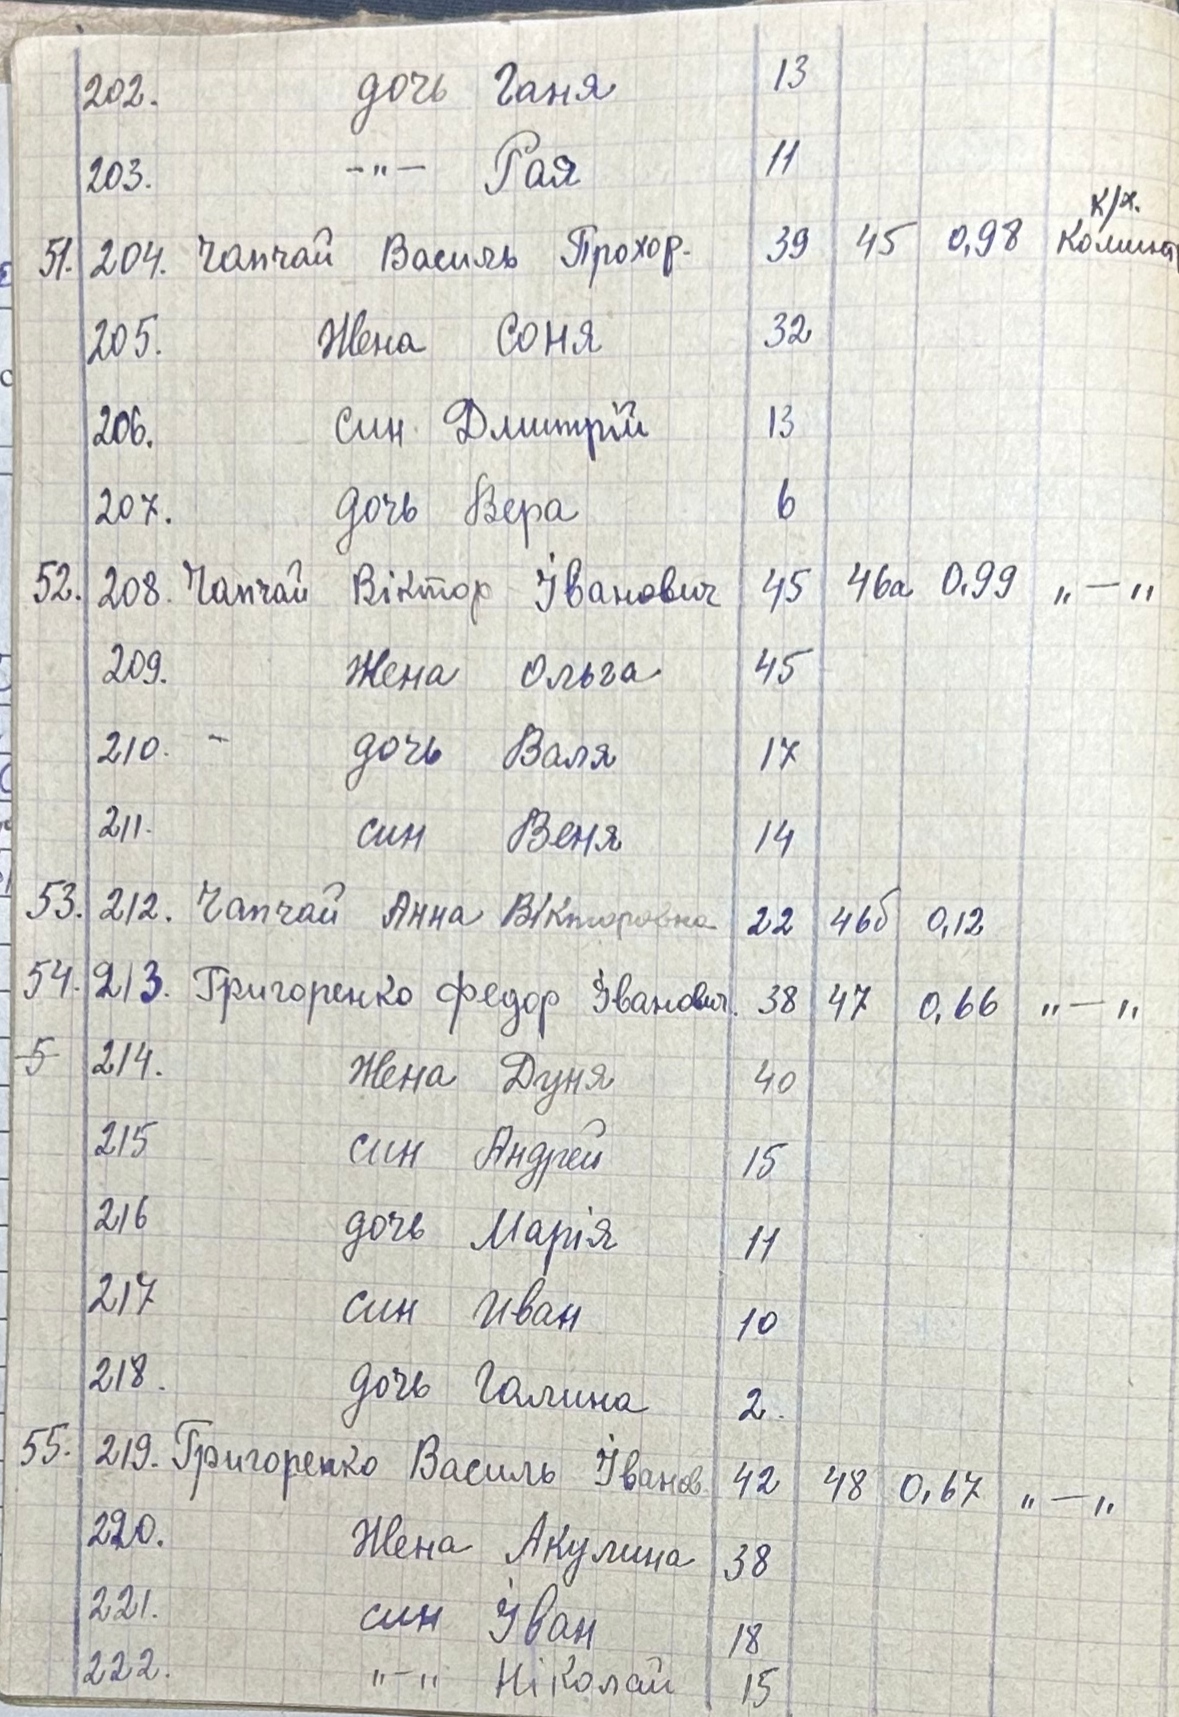 202. дочь Ганя 13
203. -"- Рая 11
к/х.
51. 204. Чапчай Василь Прохор. 39 45 0,98
205. Жена Соня 32
206. син Дмитрій 13
207. дочь Вера 6
52. 208. Чапчай Віктор Іванович 45 46а 0,99 „ — „
209. Жена Ольга 45
210. - дочь Валя 17
211. син Веня 14
53. 212. Чапчай Анна Вікторовна 22 46б 0,12
54. 213. Григоренко Федор Іванович. 38 47 0,66 „ — „
5 214. Жена Дуня 40
215 син Андрей 15
216 дочь Марія 11
217 син Иван 10
218. дочь Галина 2.
55. 219. Григоренко Василь Іванов. 42 48 0,67 „ — „
220. Жена Акулина 38
221. син Іван 18
222. „ — „ Ніколай 15